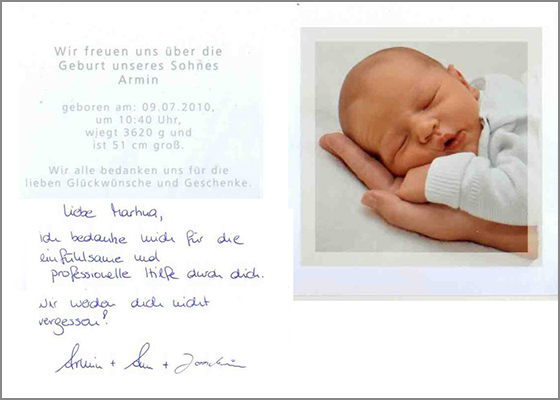 Wir freuen uns über die
Geburt unseres Sohnes
Armin
geboren am: 09.07.2010,
um 10:40 Uhr,
wiegt 3620 g und
ist 51 cm groß.
Wir alle bedanken uns für die
lieben Glückwünsche und Geschenke.
Liebe Martina,
ich bedanke mich für die
einfühlsame und
professionelle Hilfe durch dich.
Wir werden dich nicht
vergessen!
Armin + +